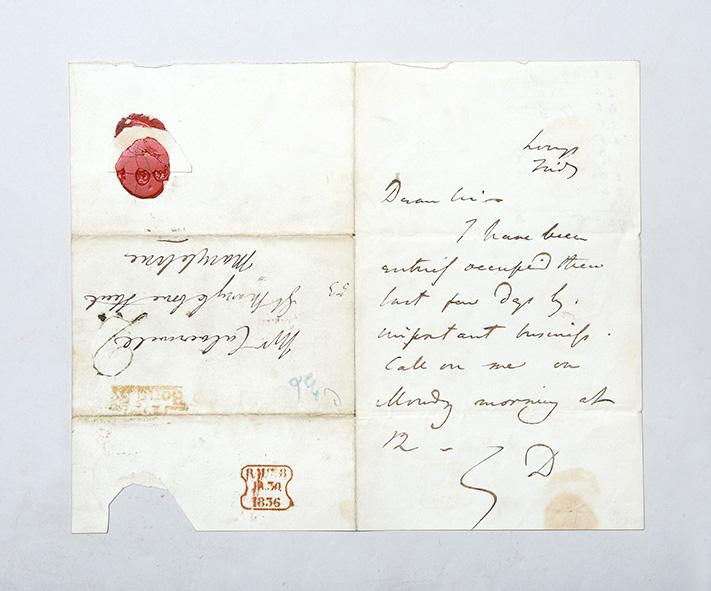 Longs
Frid
Dear Sir –
I have been
entirely occupied these
last few days by
important business.
Call on me on
Monday morning at
12 –
D
Mr Culverwell
53
Gt Marylebone Street
Marylebone
Bond St
JA.30
1836